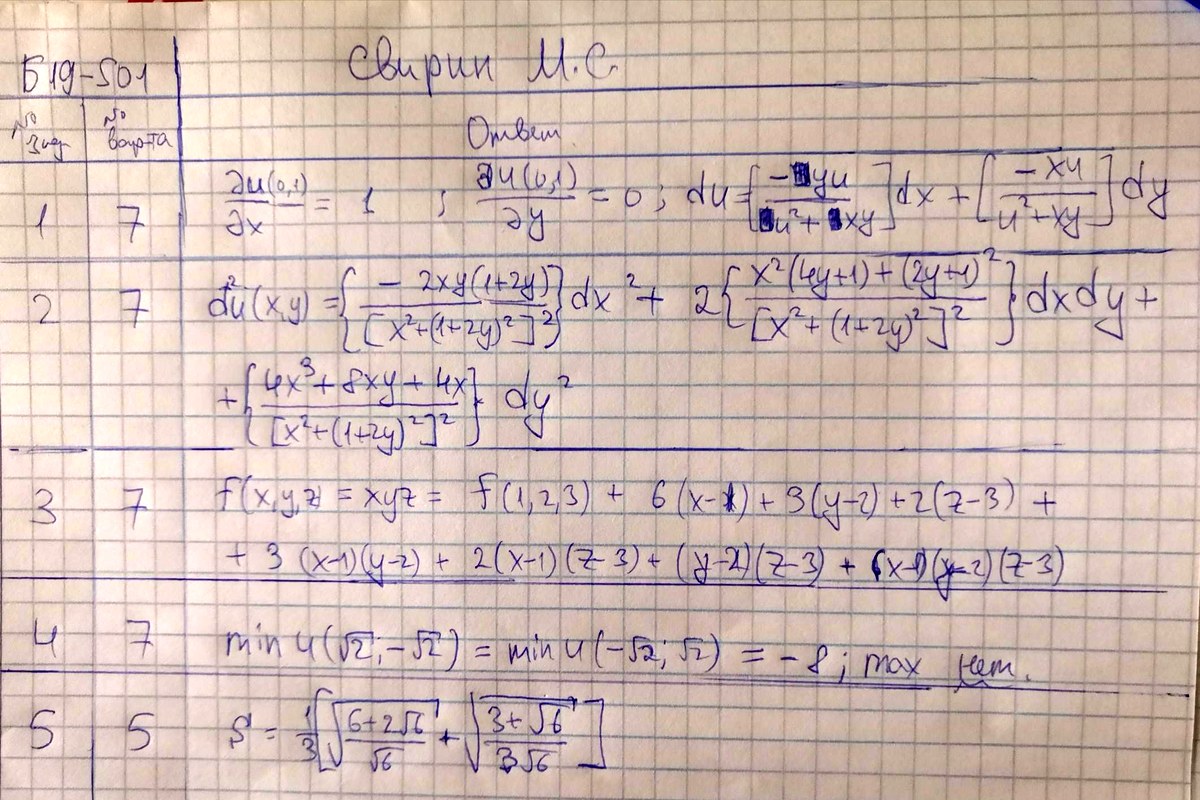 Б19-501 Свирин М.С.
№ зад № вар-та Ответ
1 7 ∂u(0,1)/∂x = 1 ; ∂u(0,1)/∂y = 0; du=[-yu/(u²+xy)]dx + [-xu/(u²+xy)]dy
2 7 d²u(x,y) = {-2xy(1+2y)/[x²+(1+2y)²]²}dx² + 2{(x²(4y+1)+(2y+1)²)/[x²+(1+2y)²]²}dxdy +
+{(4x³+8xy+4x)/[x²+(1+2y)²]²} dy²
3 7 f(x,y,z = xyz = f(1,2,3) + 6(x-1)+3(y-2)+2(z-3) +
+ 3 (x-1)(y-2) + 2(x-1)(z-3)+(y-2)(z-3) + (x-1)(y-2)(z-3)
4 7 min u(√2;-√2) = min u(-√2; √2) = -8; max нет.
5 5 S = 1/3[√((6+2√6)/√6) + √((3+√6)/(3√6))]